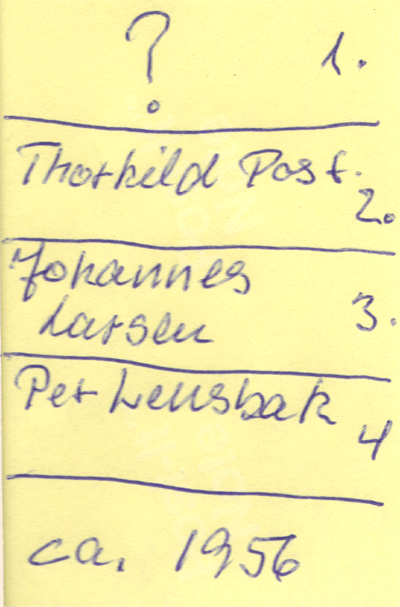 ? 1.
Thorkild Post.
2.
Johannes
Larsen 3.
Per Lensbak
4
ca. 1956